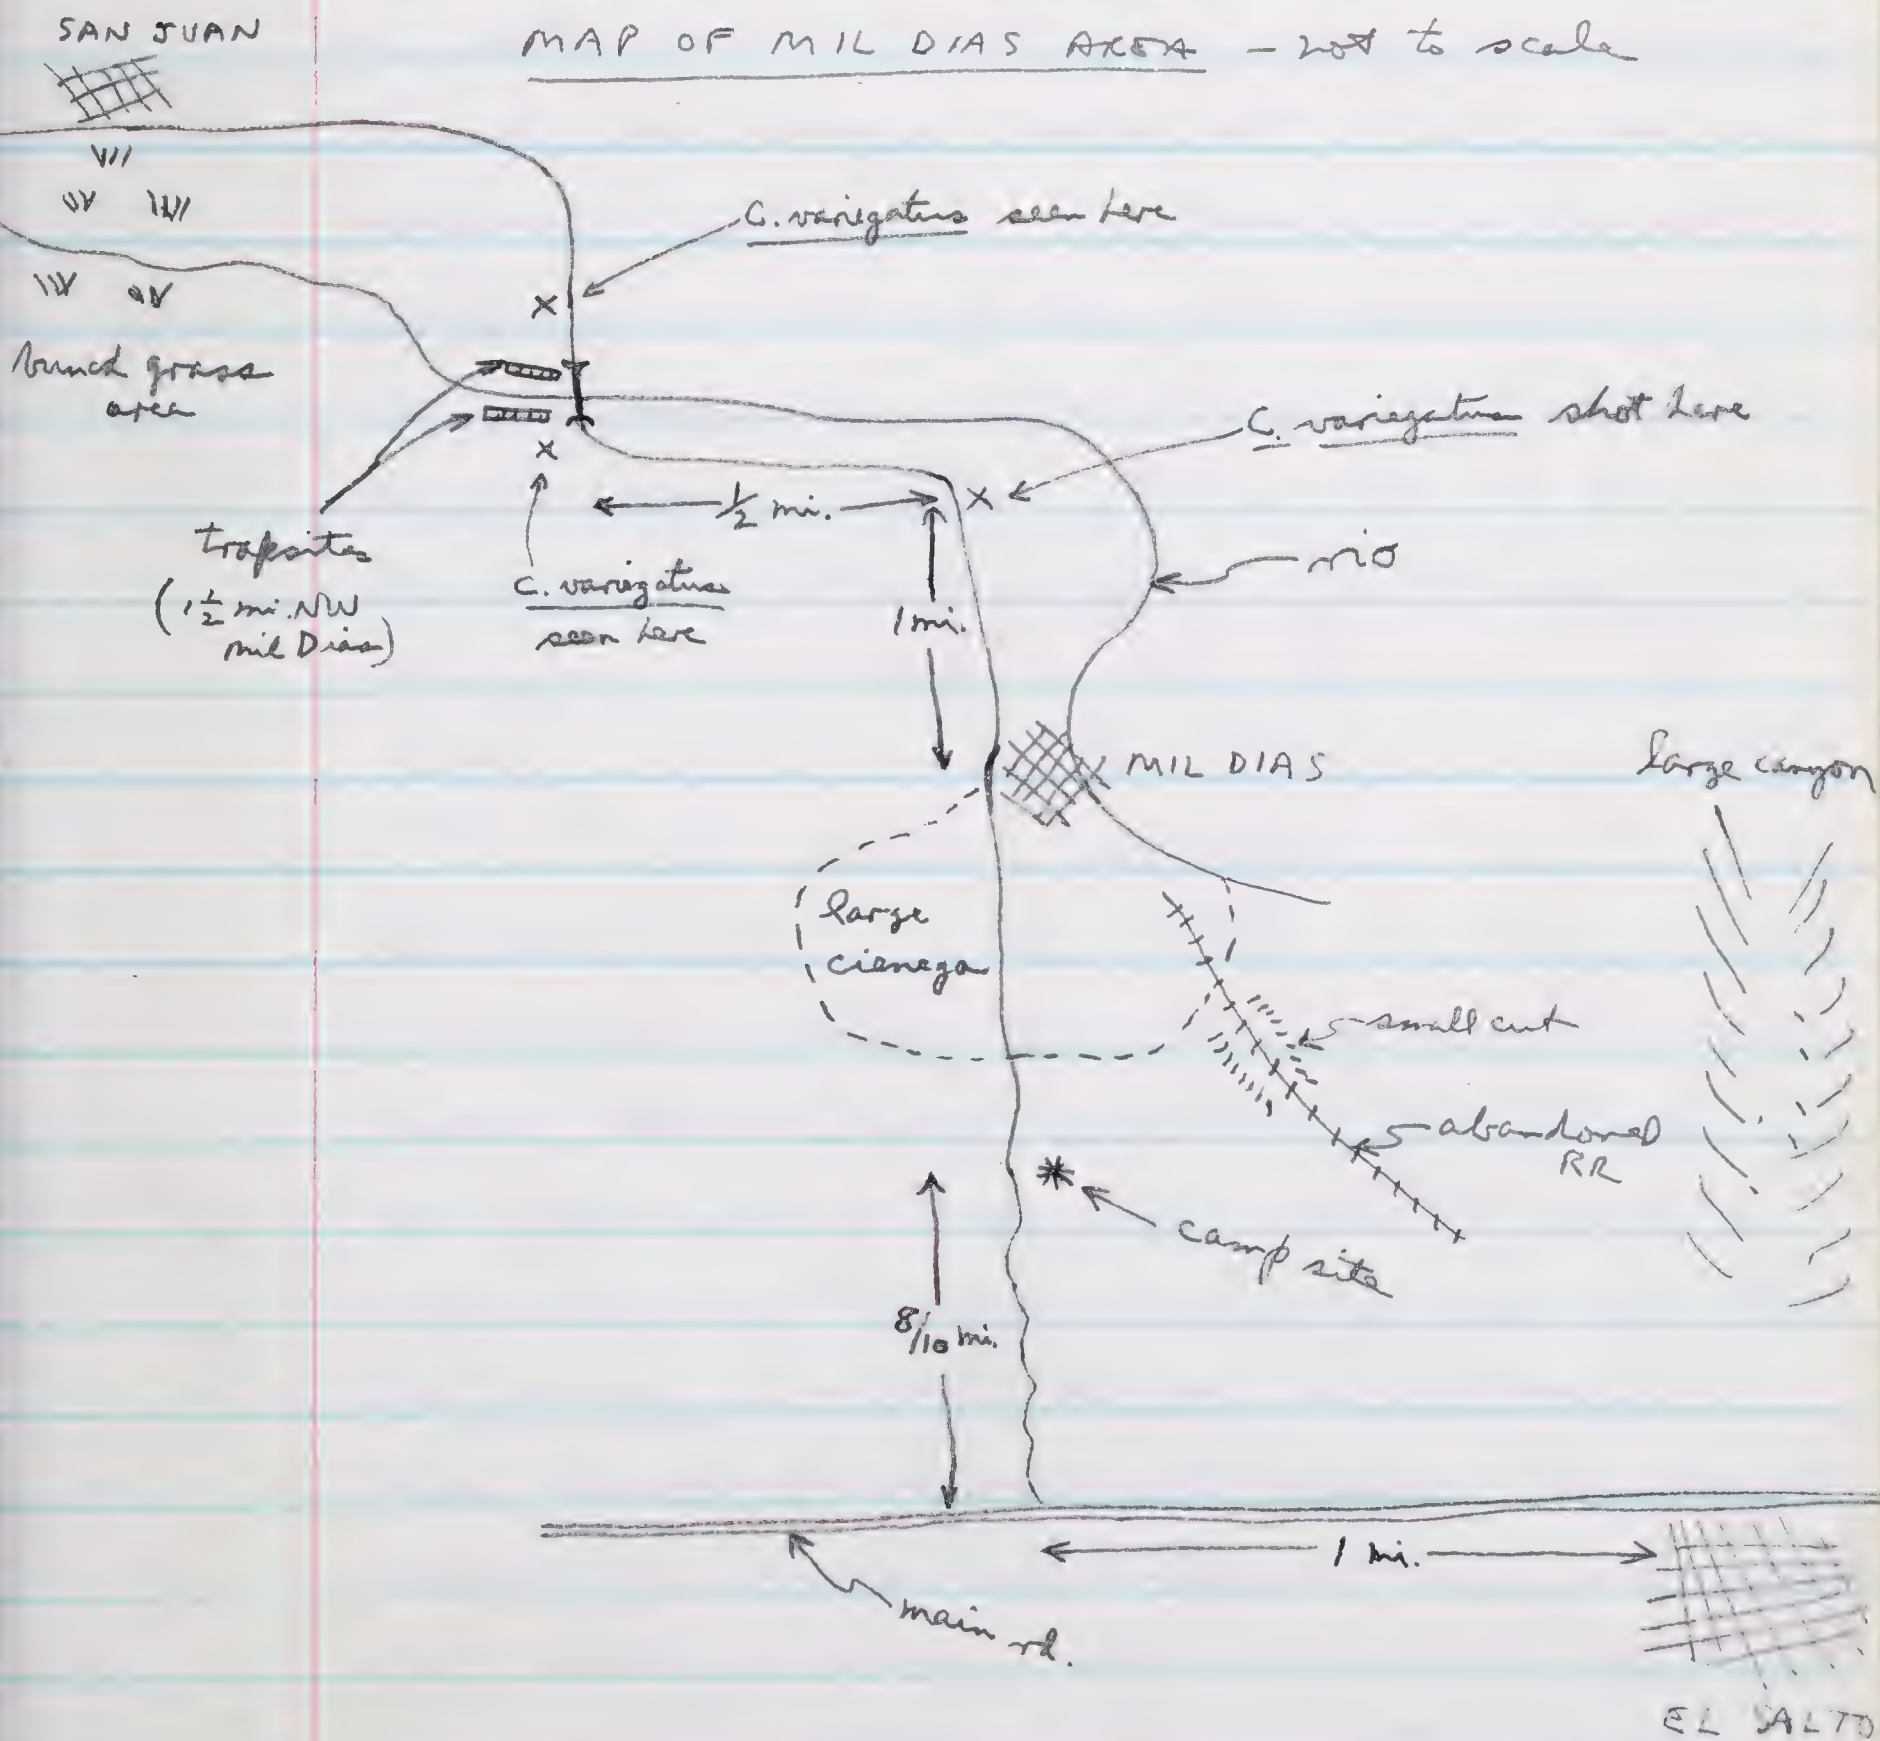 SAN JUAN
MAP OF MIL DIAS AREA - not to scale
C. variegatus seen here
bunch grass
area
C. variegatus shot here
1/2 mi.
trapsites
(1 1/2 mi. NW
Mil Dias)
C. variegatus
seen here
rio
1 mi.
MIL DIAS
large canyon
large
cienega
small cut
abandoned
RR
camp site
8/10 mi.
1 mi.
main rd.
EL SALTO